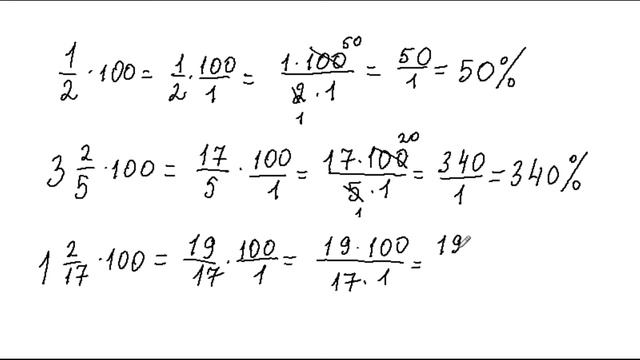 1/2 · 100 = 1/2 · 100/1 = 1 · 100/2 · 1 = 50/1 = 50%
3 2/5 · 100 = 17/5 · 100/1 = 17 · 100/5 · 1 = 340/1 = 340%
1 2/17 · 100 = 19/17 · 100/1 = 19 · 100/17 · 1 = 19